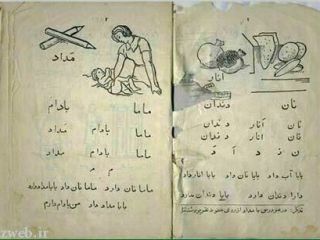 ۲
انار
نان دندان
نان انار دندان
نان انار دندان
ن ز د آ
بابا آب داد بابا نان داد بابا انار داد
دارا دندان دارد بابا دندان دارد
۳
مداد
ماما بادام
ماما بادام مداد
ماما بادام مداد
م م
ماما نان دارد ماما نان داد ماما بادام داد
بابا مداد داد من بادام دارم
zweb.ir